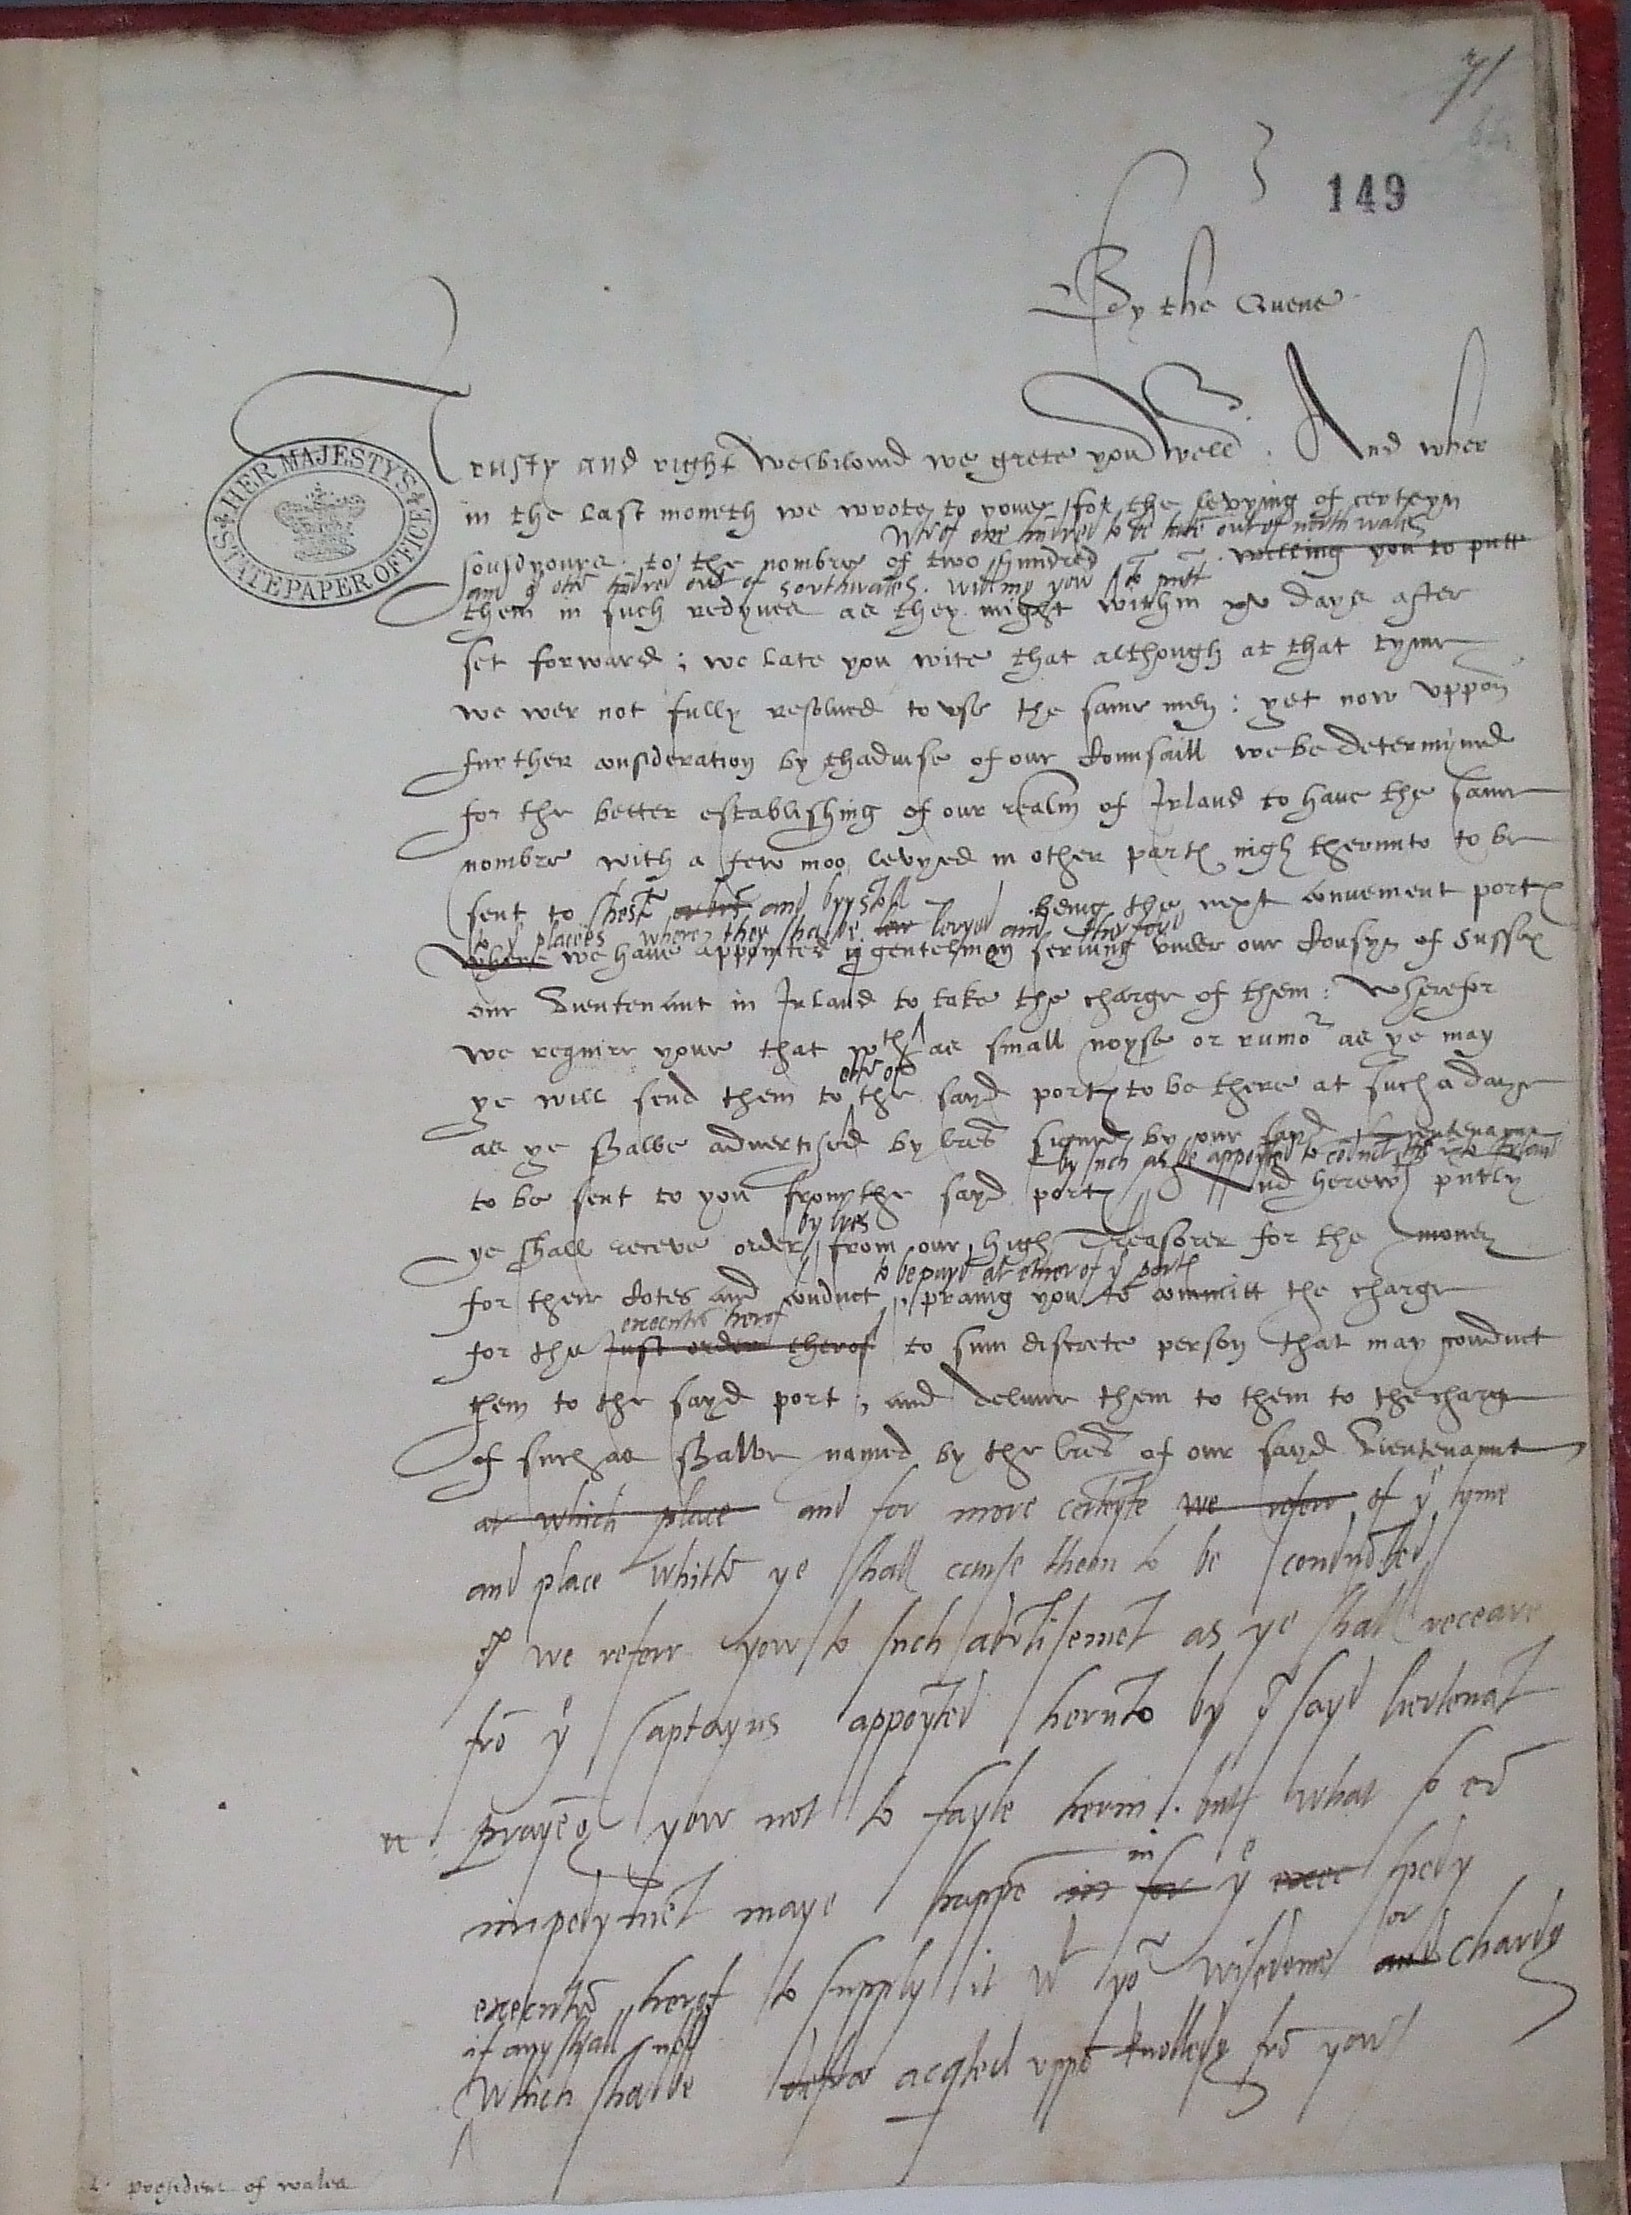 71
149
By the Quene
HER MAJESTY'S STATE PAPER OFFICE
Trusty and right welbiloved we grete you well. And wher
in the last moneth we wrote to youe for the levying of certeyn
wherof one hundred to be take out of northwales
souldyours to the nombre of two hundred willing you to putt
and ye other hundred out of southwales. willing you to putt
them in such redynes as they might within xv days after
set forward ; we late you wite that although at that tyme
we wer not fully resolued to vse the same men : yet now vppon
further consideration by thaduise of our Counsaill we be determyned
for the better establishing of our realm of Irland to haue the same
nombre with a few moo levyed in other partes nigh therunto to be
sent to chester and brystoll being the next conuenient portes
to ye places where they shalbe levyed and therfore
where we haue appointed ij gentelmen seruing vnder our Cousyn of Sussex
our Lieutenant in Irland to take the charge of them : Wherefor
we require youe that wth as small noyse or rumor as ye may
one of
ye will send them to the sayd portes to be there at such a daye
as ye shalbe advertised by lres signed by our sayd Lieutenaunt
by such as be appoynted to conduct them into Irland
to be sent to you from the sayd portes And herewth
by lres
ye shall receve order from our high Treasorer for the money
to be payd at ether of ye portes
for their Cotes and conduct , praing you to committ the charge
execution herof
for the just order therof to sum discrete person that may conduct
them to the sayd port , and deliuer them to them to the charge
of such as shalbe named by the lres of our sayd Lieutenaunt
at which place and for more certeyte we referr of ye tyme
and place whither ye shall cause them to be conducted
we referr yow to such advertisemēt as ye shall receave
frō ye Captayns appoynted hervnto by ye sayd lieutenāt
prayēg yow not to fayle herin. but what so euer
impedymēt maye happē in for ye spedy
in
executiō herof to supply it wt yor wisdome and chardg
or
if any shall nede
which shalbe acqted vppō knolledg frō yow
L. president of wales